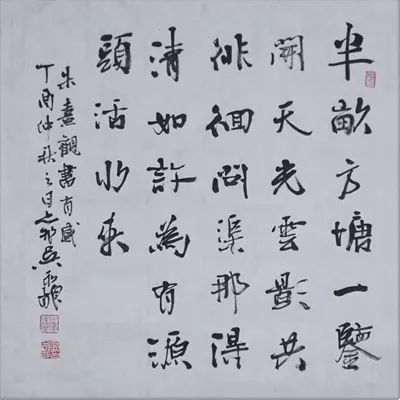 半畝方塘一鑒
開天光雲影共
徘徊問渠那得
清如許為有源
頭活水來
朱熹觀書有感
丁酉仲秋之月